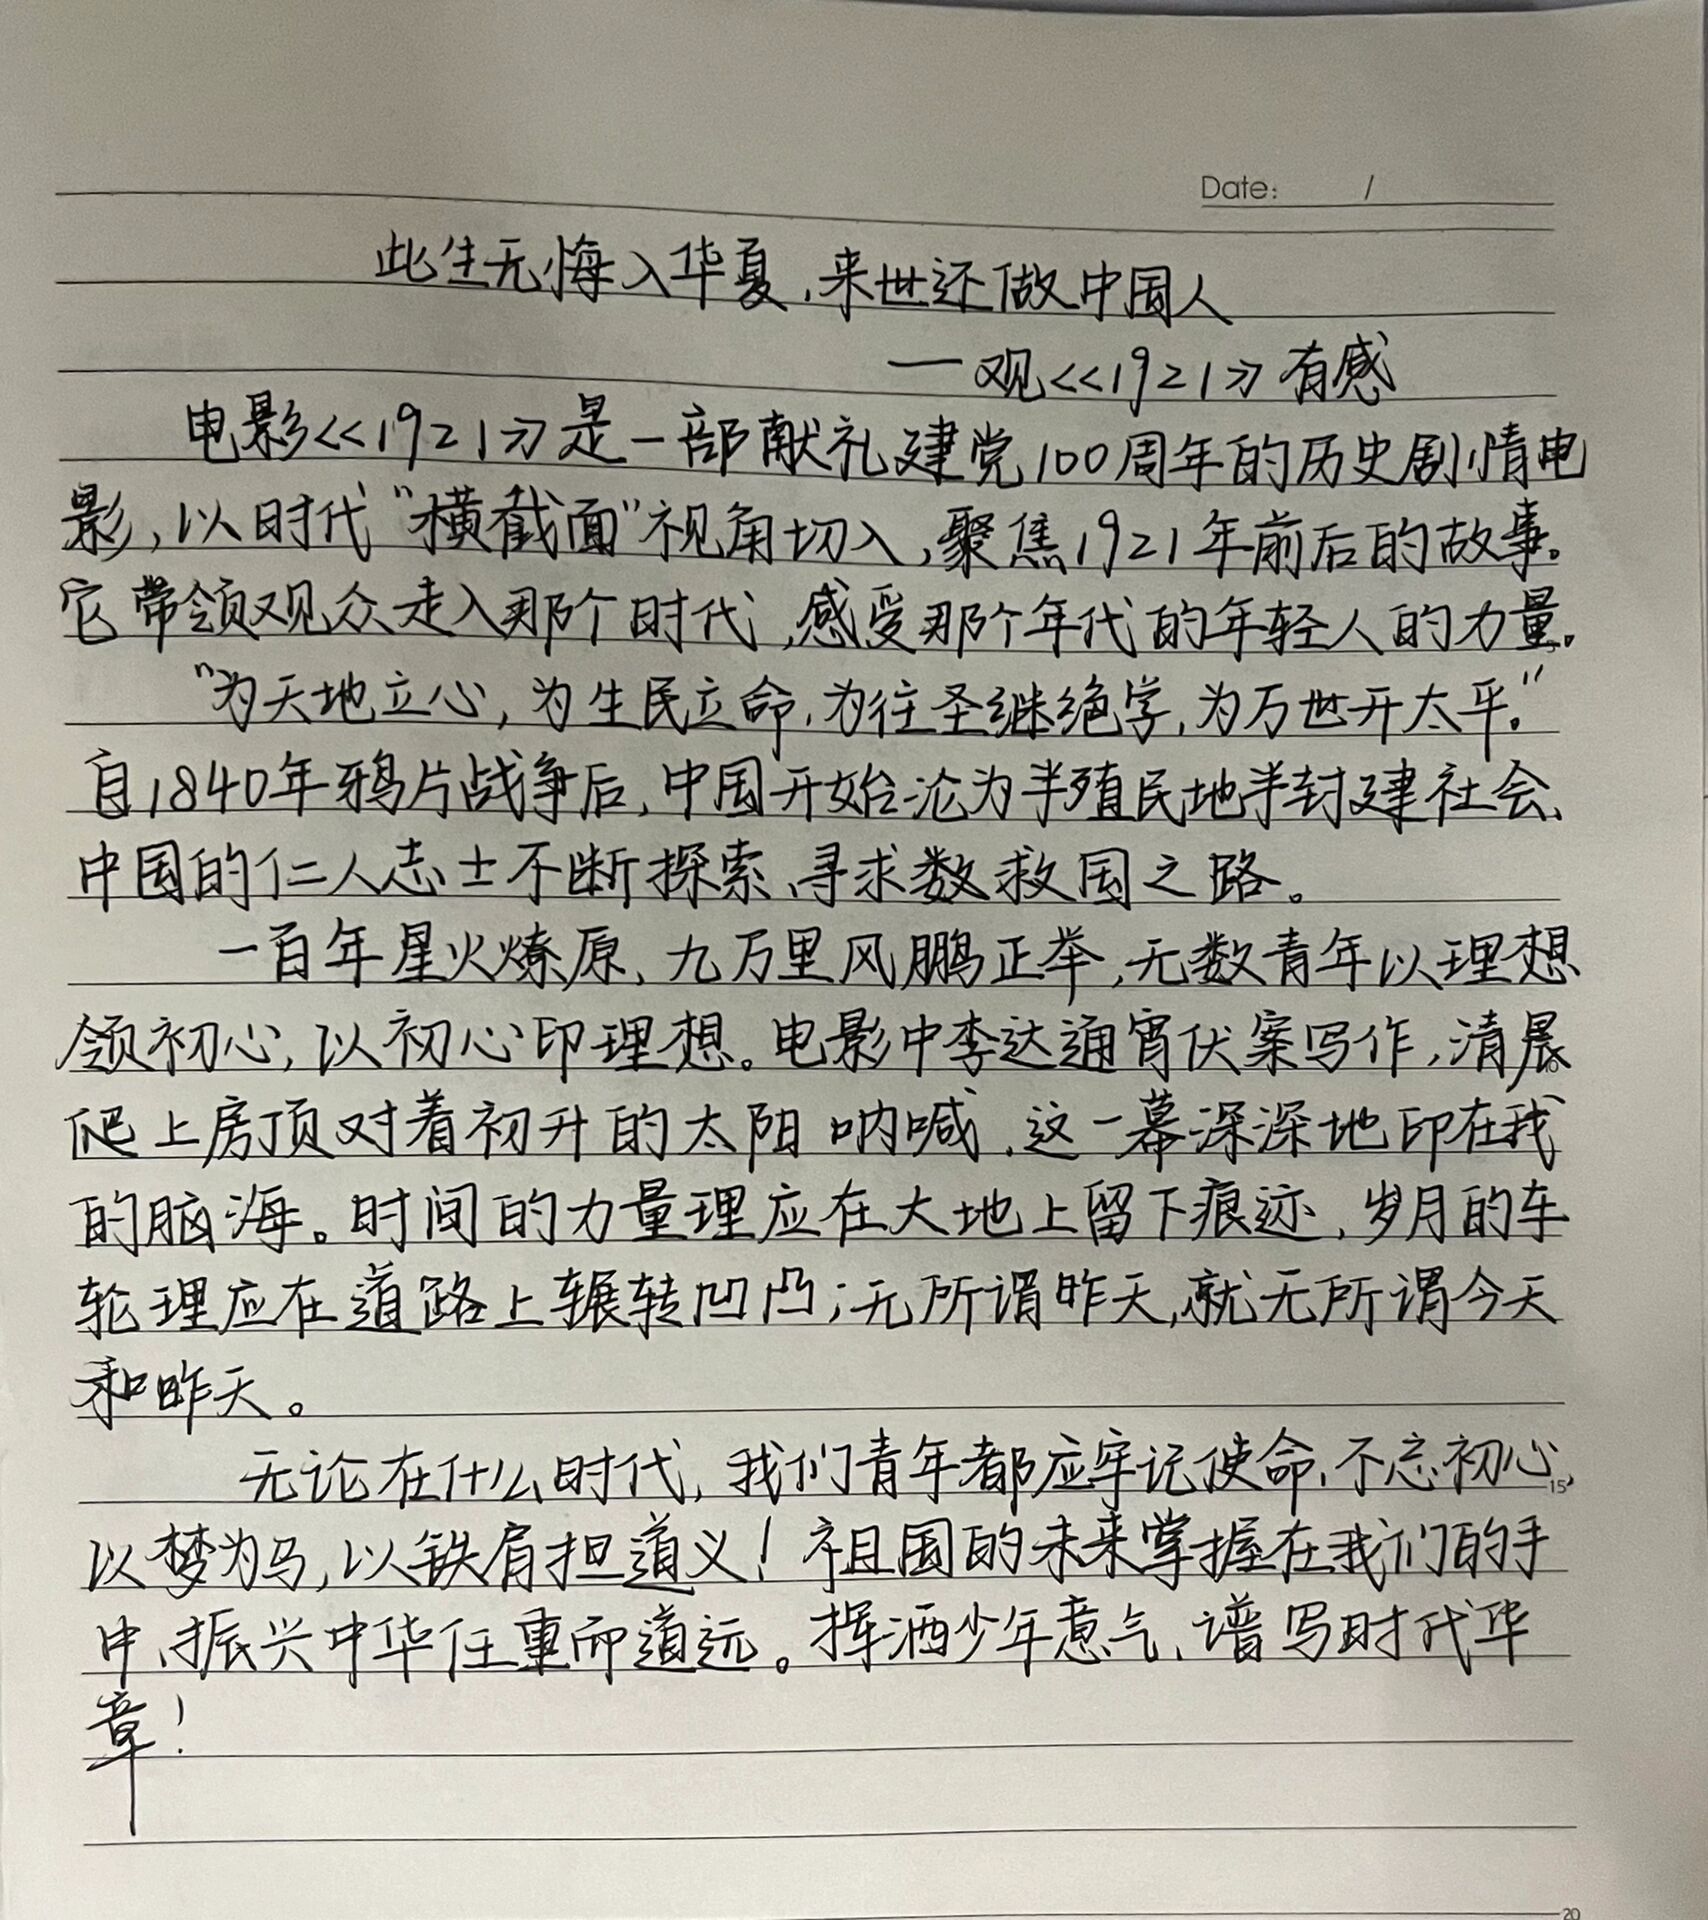 Date: /
此生无悔入华夏,来世还做中国人
—观<<1921>>有感
电影<<1921>>是一部献礼建党100周年的历史剧情电
影,以时代“横截面”视角切入,聚焦1921年前后的故事。
它带领观众走入那个时代,感受那个年代的年轻人的力量。
“为天地立心,为生民立命,为往圣继绝学,为万世开太平。”
自1840年鸦片战争后,中国开始沦为半殖民地半封建社会、
中国的仁人志士不断探索、寻求数救国之路。
一百年星火燎原、九万里风鹏正举,无数青年以理想
领初心,以初心印理想。电影中李达通宵伏案写作,清晨
爬上房顶对着初升的太阳呐喊、这一幕深深地印在我
的脑海。时间的力量理应在大地上留下痕迹、岁月的车
轮理应在道路上辗转凹凸;无所谓昨天,就无所谓今天
和昨天。
无论在什么时代,我们青年都应牢记使命、不忘初心,
15
以梦为马,以铁肩担道义!祖国的未来掌握在我们的手
中、振兴中华任重而道远。挥洒少年意气、谱写时代华
章!
20